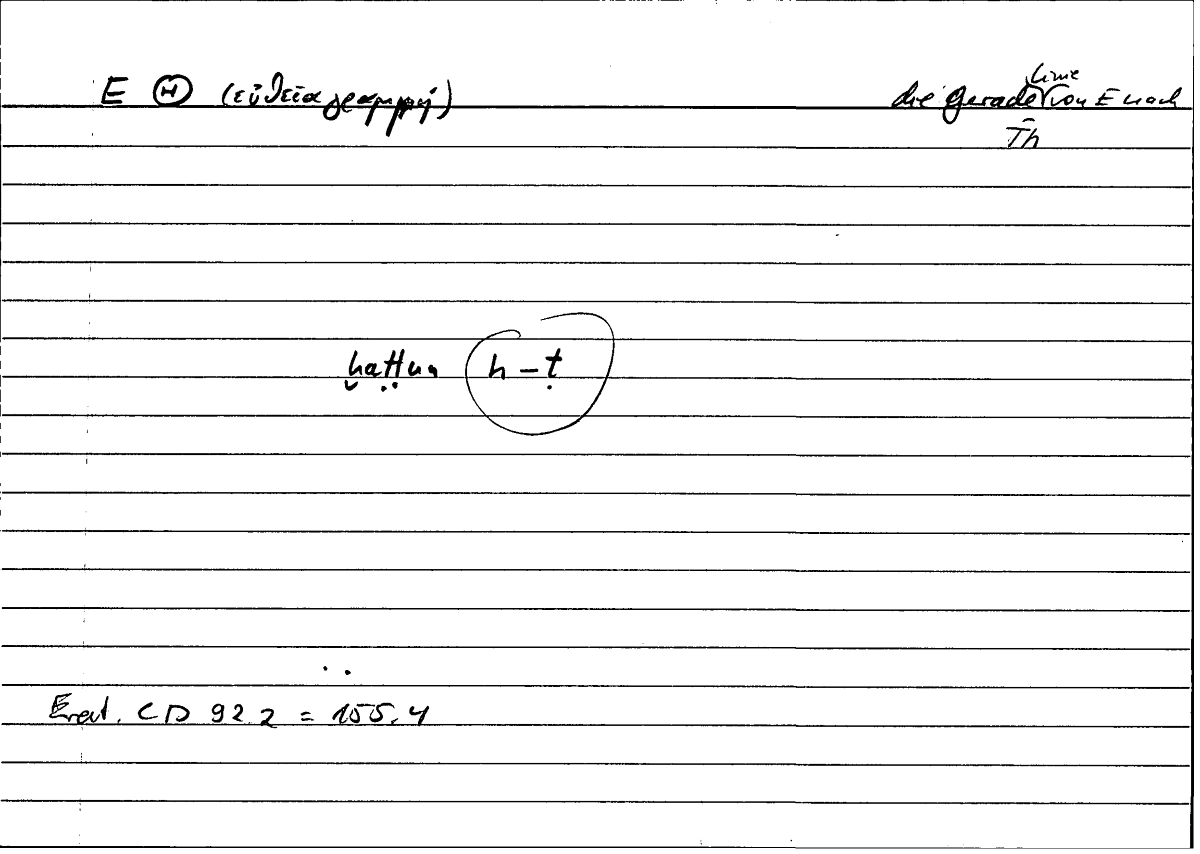 E Θ (εὐθεῖα γραμμή) die gerade Linie von E nach Th
ḫaṭṭun h – ṭ
Erat. CD 92 2 = 155.4